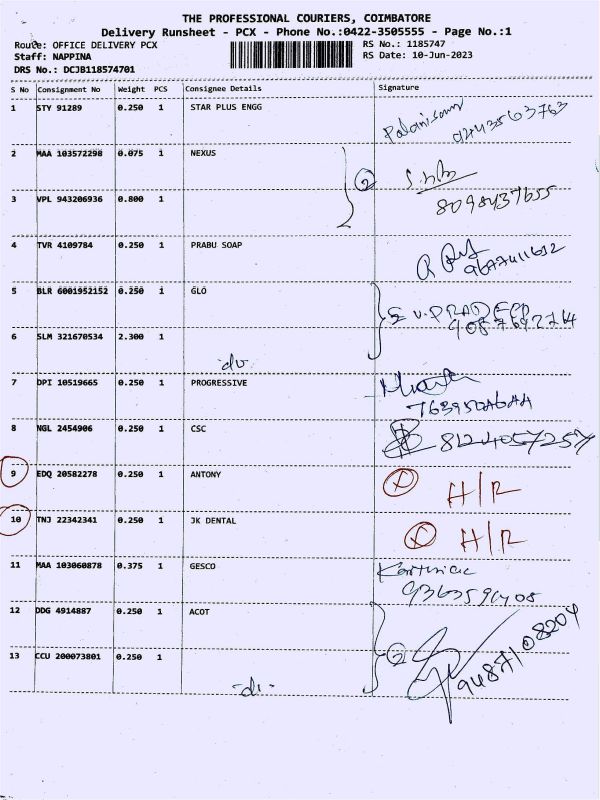 THE PROFESSIONAL COURIERS, COIMBATORE
Delivery Runsheet - PCX - Phone No.:0422-3505555 - Page No.:1
Route: OFFICE DELIVERY PCX RS No.: 1185747
Staff: NAPPINA RS Date: 10-Jun-2023
DRS No.: DCJB118574701
S No Consignment No Weight PCS Consignee Details Signature
1 STY 91289 0.250 1 STAR PLUS ENGG
9443563763
2 MAA 103572298 0.075 1 NEXUS
2
3 VPL 943206936 0.800 1 8098437655
4 TVR 4109784 0.250 1 PRABU SOAP
5 BLR 6001952152 0.250 1 GLO
2 V.PRADEEP
6 SLM 321670534 2.300 1
7 DPI 10519665 0.250 1 PROGRESSIVE
8 NGL 2454906 0.250 1 CSC 8124057257
9 EDQ 20582278 0.250 1 ANTONY X H/R
10 TNJ 22342341 0.250 1 JK DENTAL X H/R
11 MAA 103060878 0.375 1 GESCO
12 DDG 4914887 0.250 1 ACOT
2 9487108204
13 CCU 200073801 0.250 1